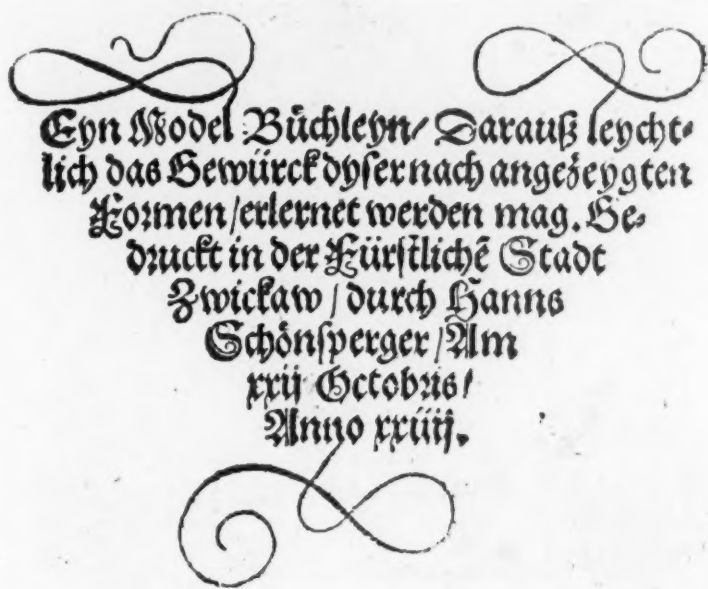 Eyn Model Büchleyn/ Darauß leycht⸗
lich das Gewürck dyser nach angezeygten
Formen/erlernet werden mag. Ge⸗
druckt in der Fürstlichẽ Stadt
Zwickaw/durch Hanns
Schönsperger/Am
xxij Octobris/
Anno xxiiij.